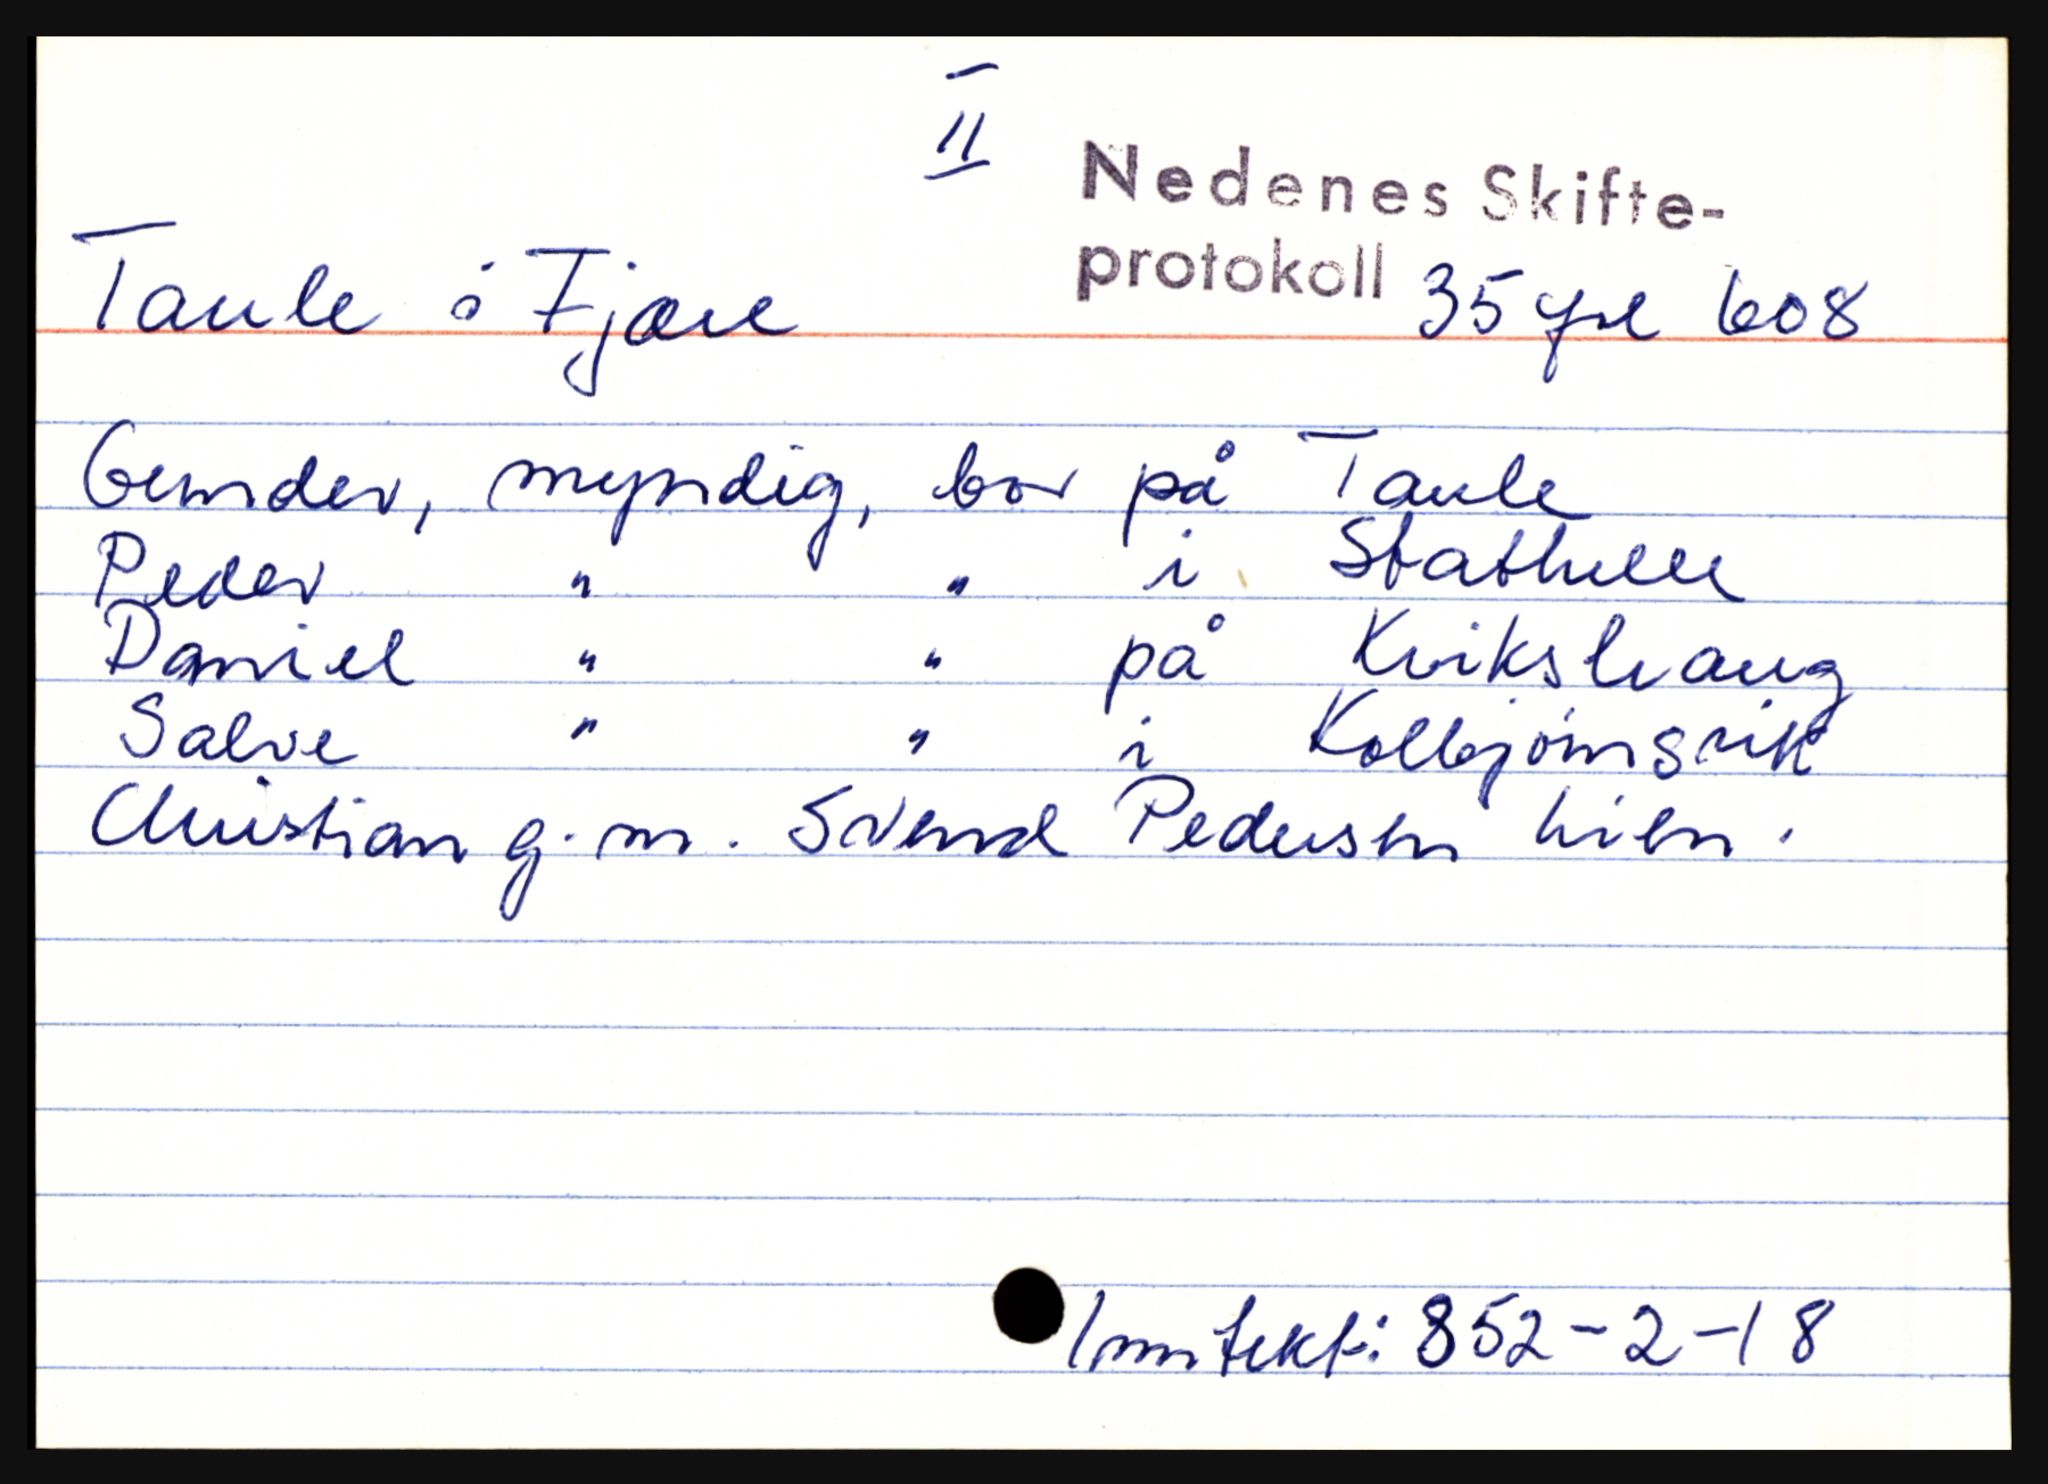 II
Nedenes Skifte-
protokoll 35 fol 608
Taule i Fjære
Gunder, myndig, bor på Taule
Peder " " i Stathelle
Daniel " " på Kvikshaug
Salve " " i Kolbjørnsvik
Christian g.m. Svend Pedersen Lien.
Inntekt: 852-2-18